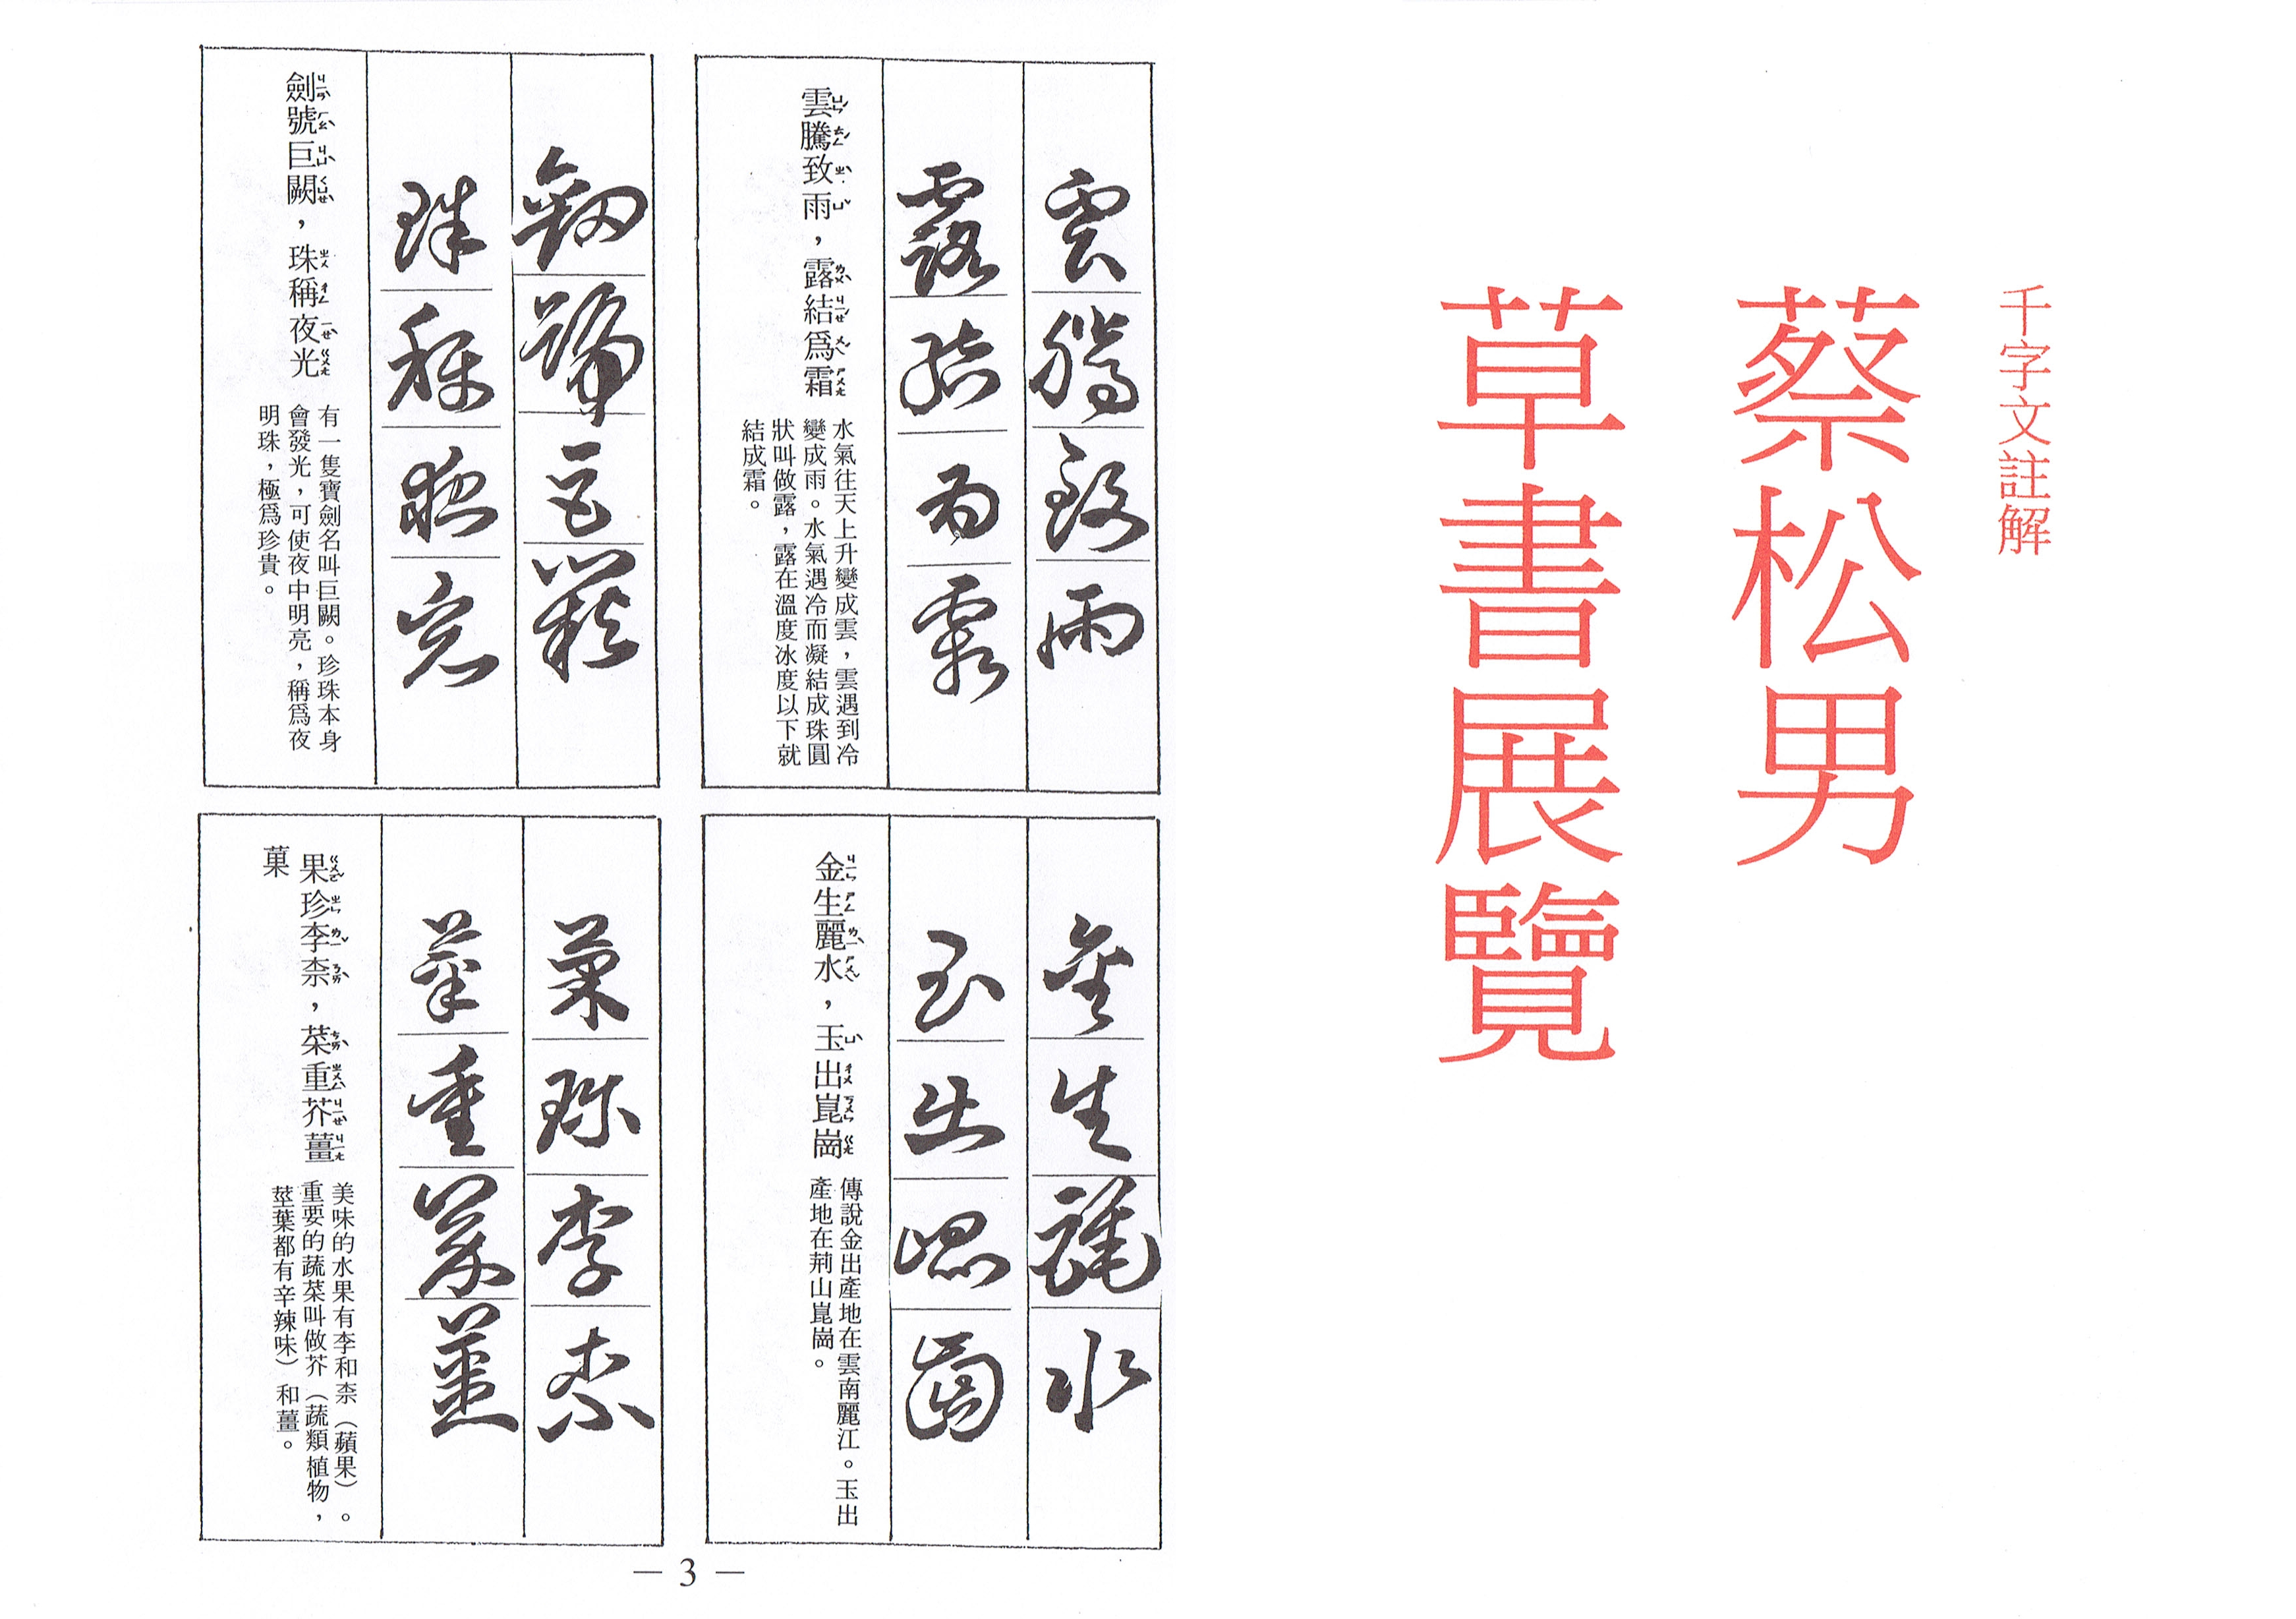 千字文註解
蔡松男
草書展覽
雲騰致雨
露結為霜
雲騰致雨，露結爲霜
水氣往天上升變成雲，雲遇到冷
變成雨。水氣遇冷而凝結成珠圓
狀叫做露，露在溫度冰度以下就
結成霜。
金生麗水
玉出崑崗
金生麗水，玉出崑崗
傳說金出產地在雲南麗江。玉出
產地在荊山崑崗。
劍號巨闕
珠稱夜光
劍號巨闕，珠稱夜光
有一隻寶劍名叫巨闕。珍珠本身
會發光，可使夜中明亮，稱爲夜
明珠，極爲珍貴。
菓珍李柰
菜重芥薑
果珍李柰，菜重芥薑
菓
美味的水果有李和柰（蘋果）。
重要的蔬菜叫做芥（蔬類植物，
莖葉都有辛辣味）和薑。
— 3 —